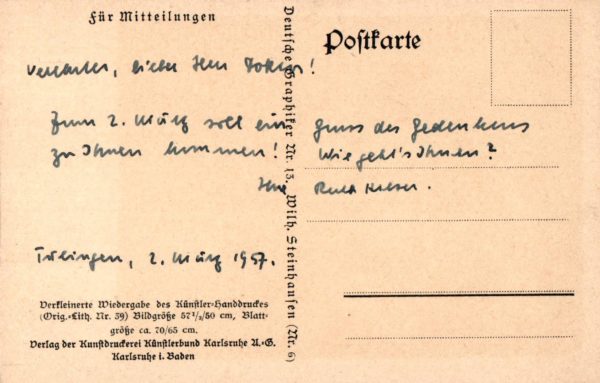 Für Mitteilungen
Postkarte
Verehrter, lieber Herr
Zum 2. März soll ein Gruss des Gedenkens
zu Ihnen kommen! Wie geht's Ihnen?
Ihre Ruth
Tübingen, 2. März 1957.
Deutsche Graphiker Nr. 13. Wilh. Steinhausen (Nr. 6)
Verkleinerte Wiedergabe des Künstler-Handdruckes
(Orig.-Lith. Nr. 39) Bildgröße 57 1/2/50 cm, Blatt-
größe ca. 70/65 cm.
Verlag der Kunstdruckerei Künstlerbund Karlsruhe A.-G.
Karlsruhe i. Baden